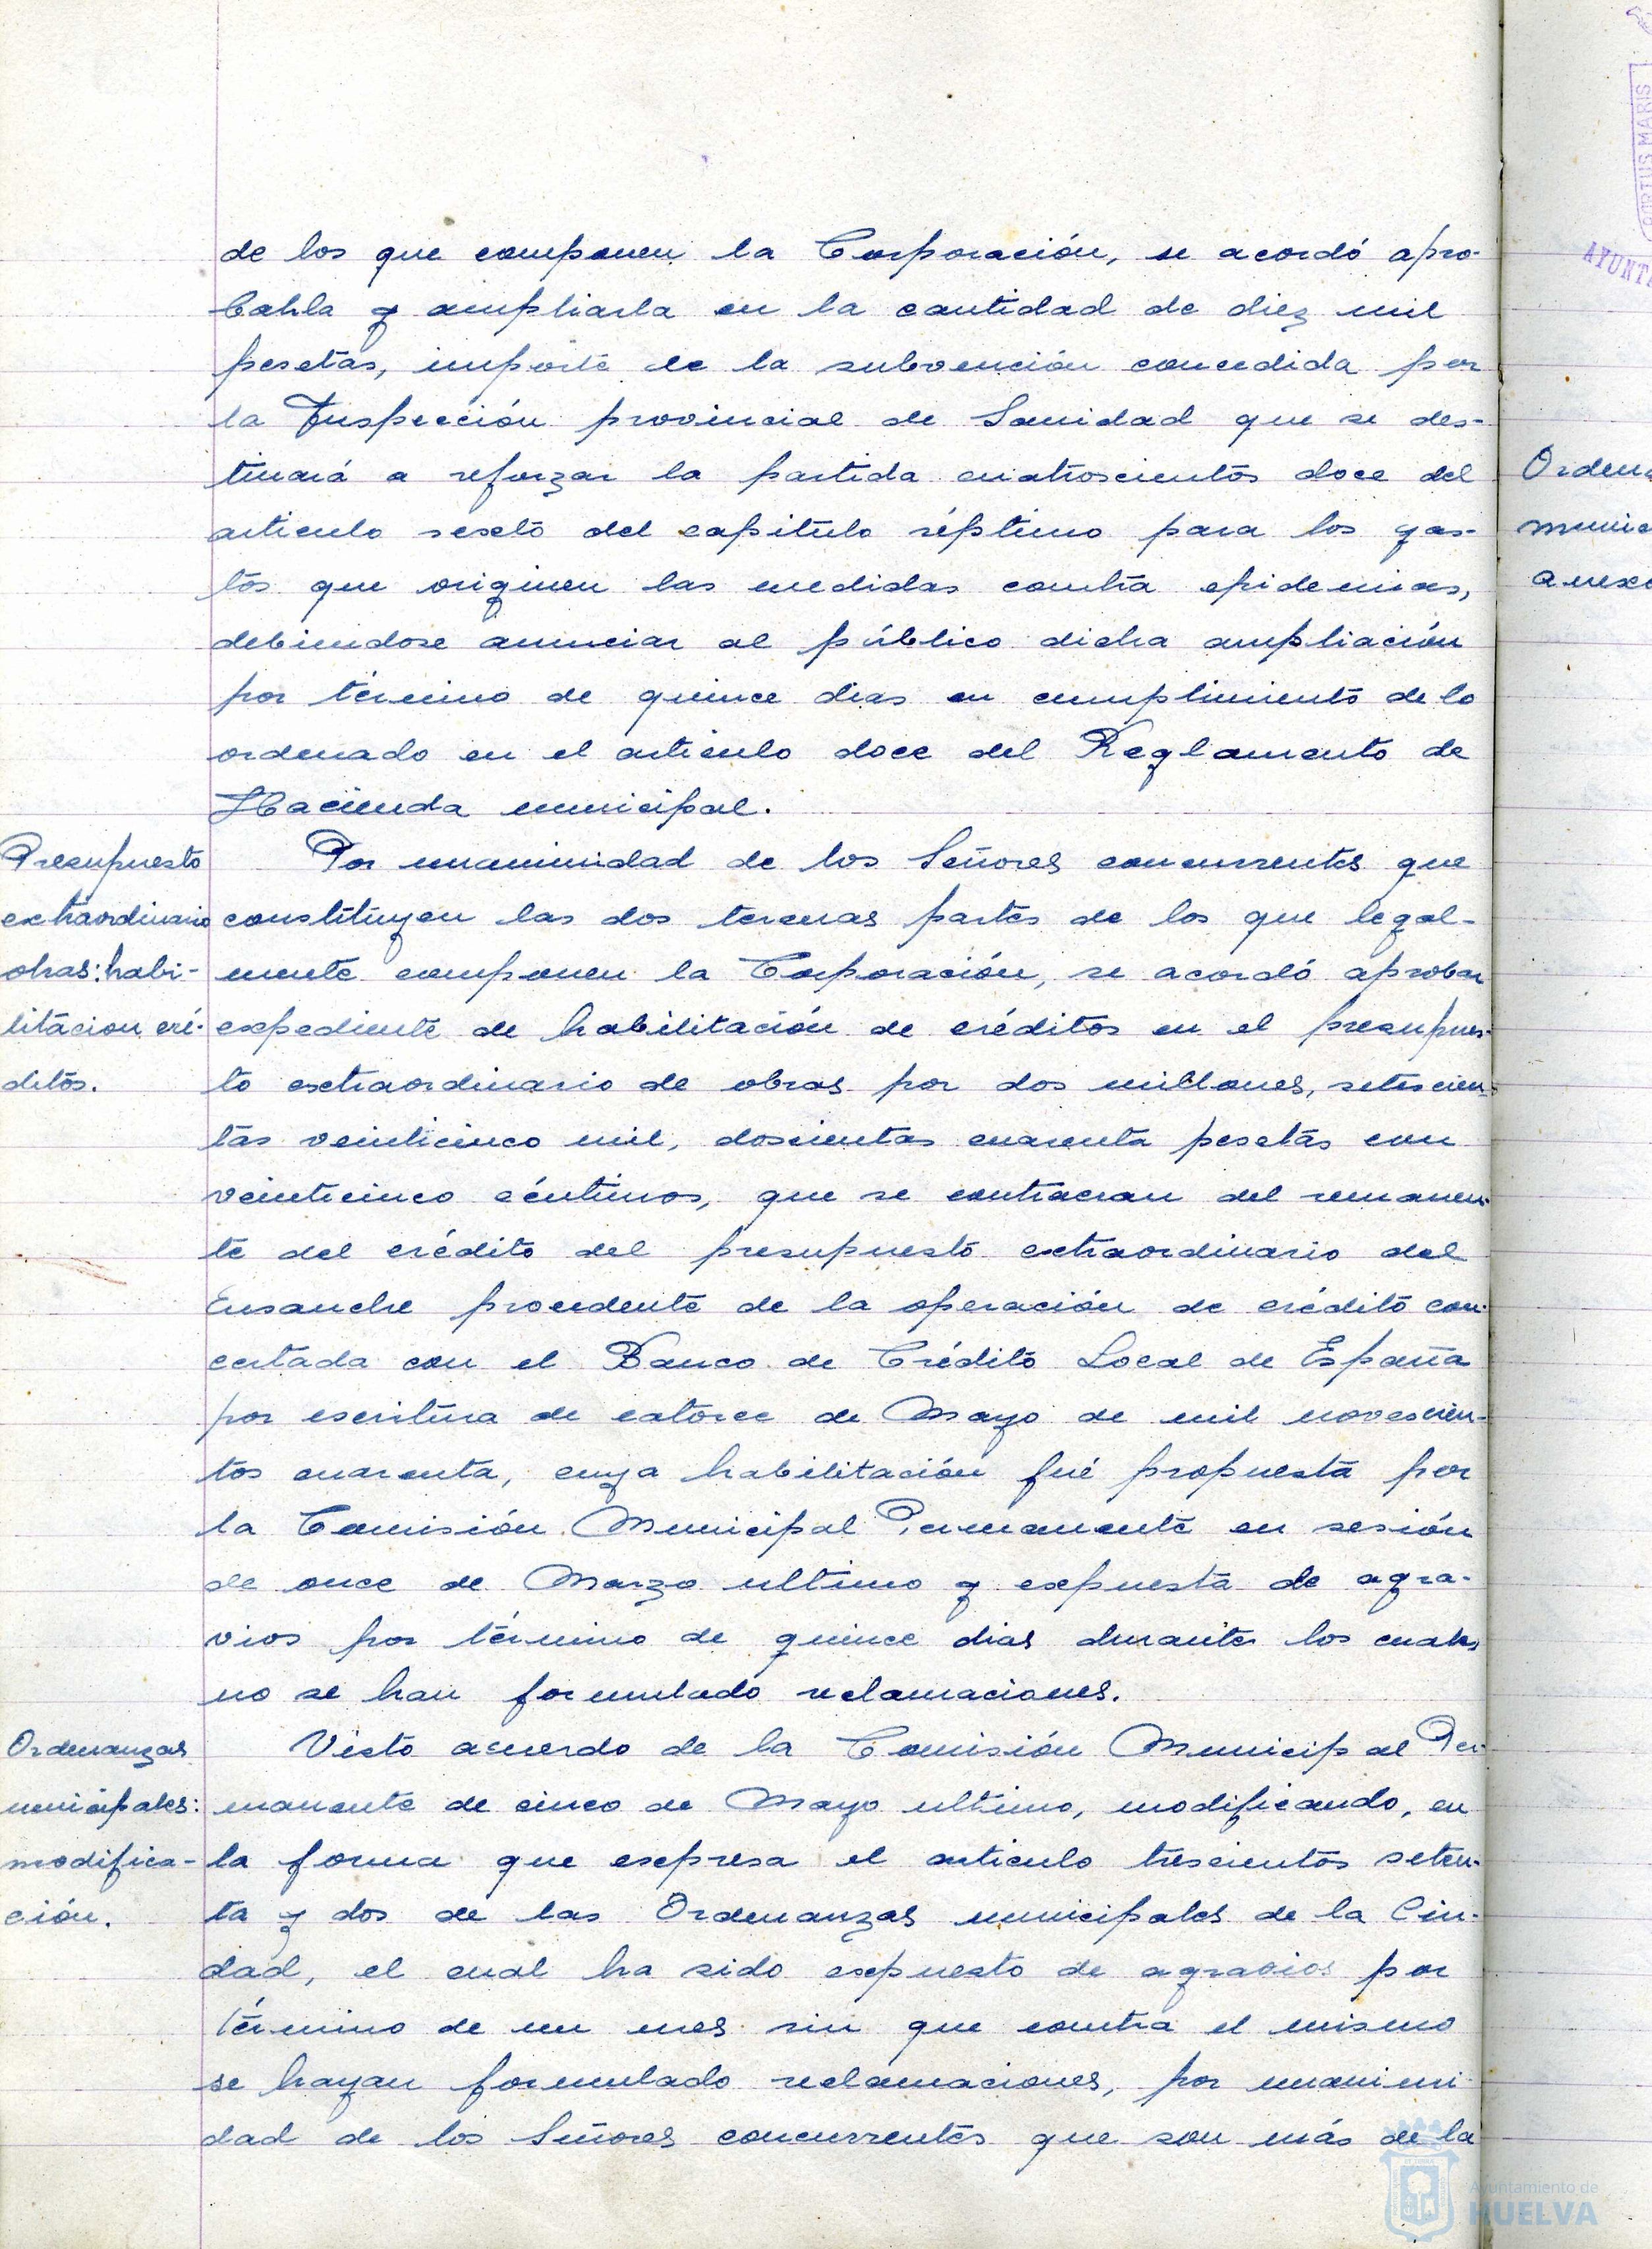 de los que componen la Corporación, se acordó apro-
barla y ampliarla en la cantidad de diez mil
pesetas, importe de la subvención concedida por
la Inspección provincial de Sanidad que se des-
tinará a reforzar la partida cuatroscientos doce del
articulo sexto del capitulo séptimo para los gas-
tos que originen las medidas contra epidemias,
debiendose anunciar al público dicha ampliación
por término de quince dias en cumplimiento de lo
ordenado en el articulo doce del Reglamento de
Hacienda municipal.
Presupuesto
extraordinario
obras: habi-
litacion cré-
ditos.
Por unanimidad de los Señores concurrentes que
constituyen las dos terceras partes de los que legal-
mente componen la Corporación, se acordó aprobar
expediente de habilitación de créditos en el presupues-
to extraordinario de obras por dos millones, setescien-
tas veinticinco mil, doscientas cuarenta pesetas con
veinticinco céntimos, que se contraeran del remanen-
te del crédito del presupuesto extraordinario del
Ensanche procedente de la operación de crédito con-
certada con el Banco de Crédito Local de España
por escritura de catorce de Mayo de mil novescien-
tos cuarenta, cuya habilitación fué propuesta por
la Comisión Municipal Permanente en sesión
de once de Marzo ultimo y expuesta de agra-
vios por término de quince dias durante los cuales
no se han formulado reclamaciones.
Ordenanzas
municipales:
modifica-
ción.
Visto acuerdo de la Comisión Municipal Per-
manente de cinco de Mayo ultimo, modificando, en
la forma que expresa el articulo trescientos seten-
ta y dos de las Ordenanzas municipales de la Ciu-
dad, el cual ha sido expuesto de agravios por
término de un mes sin que contra el mismo
se hayan formulado reclamaciones, por unanimi-
dad de los Señores concurrentes que son más de la
PORTUS MARIS
Ayuntamiento de
HUELVA